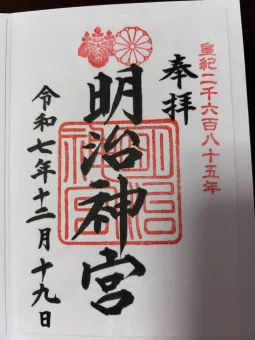 皇紀二千六百八十五年
奉拝
明治神宮
明治神宮
令和七年十二月十九日